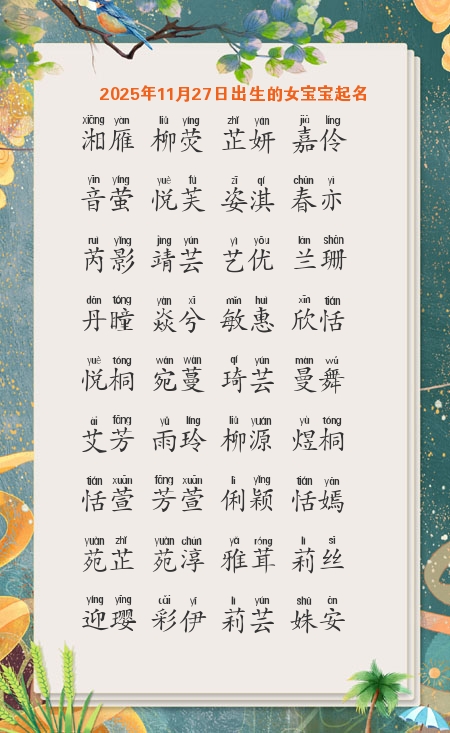 2025年11月27日出生的女宝宝起名
xiāng yàn liǔ yíng zhǐ yán jiā líng
湘雁 柳荧 芷妍 嘉伶
yīn yíng yuè fú zī qí chūn yì
音萤 悦芙 姿淇 春亦
ruì yǐng jìng yún yì yōu lán shān
芮影 靖芸 艺优 兰珊
dān tóng yàn xī mǐn huì xīn tián
丹曈 焱兮 敏惠 欣恬
yuè tóng wǎn wàn qí yún màn wǔ
悦桐 宛蔓 琦芸 曼舞
ài fāng yǔ líng liǔ yuán yù tóng
艾芳 雨玲 柳源 煜桐
tián xuān fāng xuān lì yǐng tián yān
恬萱 芳萱 俐颖 恬嫣
yuàn zhǐ yuàn chún yǎ róng lì sī
苑芷 苑淳 雅茸 莉丝
yíng yīng cǎi yī lì yún shū ān
迎璎 彩伊 莉芸 姝安